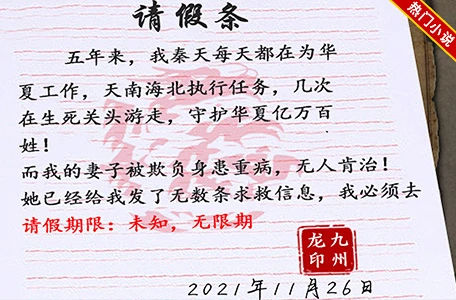 请假条
热门小说
五年来，我秦天每天都在为华
夏工作，天南海北执行任务，几次
在生死关头游走，守护华夏亿万百
姓！
而我的妻子被欺负身患重病，无人肯治！
她已经给我发了无数条求救信息，我必须去
请假期限：未知，无限期
九州
龙印
2021年11月26日